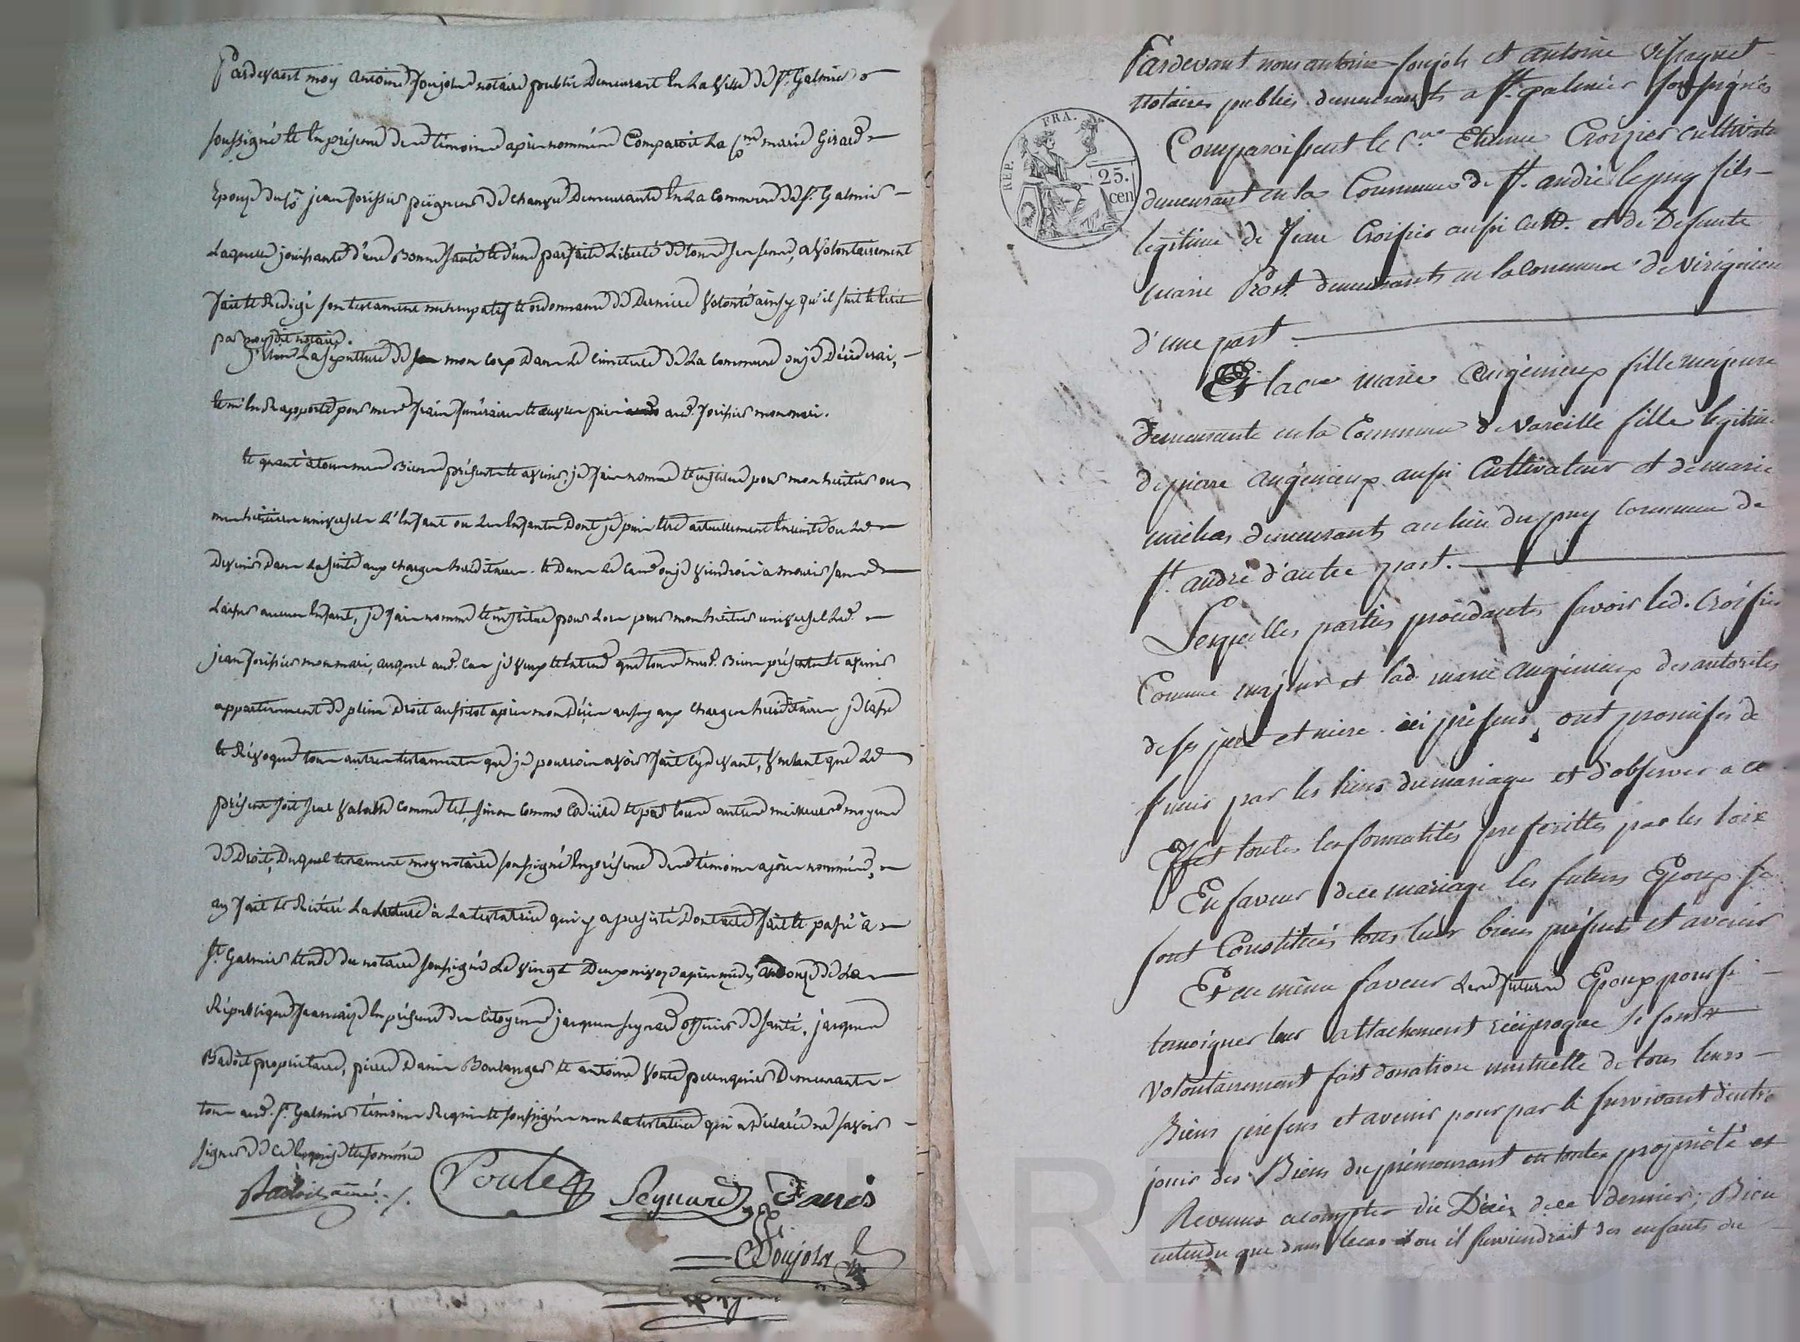 Pardevant moy antoine Soujols notaire public demeurant en la ville de St. Galmier
soussigné et en présence des témoins après nommés Comparoit La Cne marie Girard
Epouse du Cn jean forissier peigneur de chanvre demeurante en la commune de St. Galmier
Laquelle jouissante d'une Bonne santé et d'une parfaite Liberté de tous ses sens, a volontairement
fait et Redigé son testament nuncupatif et ordonnance de Derniere volonté ainsy qu'il suit et Ecrit
par moy dit notaire.
La sepulture de mon corps dans le cimetiere de La commune où je décéderai,
et m'en Rapporte pour mes frais funéraires et œuvres pies aud. forissier mon mari.
Et quant à tous mes Biens présents et avenir, je fais nomme et institue pour mon heritier ou
mon héritiere universelle L'Enfant ou Les Enfants Dont je puis être actuellement Enceinte ou Le
Devenir Dans La suite aux charges héréditaires. Et Dans Le cas où je viendrois à mourir sans
Laisser aucun Enfant, je fais nomme et institue pour Lors pour mon héritier universel Led.
jean forissier mon mari, auquel aud. Cas je veux et Entend que tous mesd. Biens présents et avenir
appartiennent de plein Droit aussitot après mon Décès aussy aux charges héréditaires je Casse
et Révoque tous autres testaments que je pourrois avoir fait cy devant, voulant que Le
présent soit seul valable comme tel sinon comme Codicile et par tous autres meilleurs moyens
de Droit, Duquel testament moy notaire soussigné En présence desd. témoins après nommés,
ay fait et Réitéré La Lecture à La testatrice qui y a persisté Dont acte fait et passé à
St. Galmier Etude du notaire soussigné Le vingt Deux nivose après midy an onze de La
République française En présence des Citoyens jacques seynard officier de santé, jacques
Badoit propriétaire, pierre danis Boulanger et antoine Voute perruquier Demeurants
tous aud. St. Galmier témoins Requis et soussignés non La testatrice qui a déclaré ne savoir
signer de ce Enquise et sommée
Badoit ainé. Voute Seynard Danis
Soujols
Pardevant nous antoine Soujols et antoine
Notaires publics demeurants a St. galmier Soussignés
REP. FRA. 25. cen
Comparoissent le Cen Etienne Croizier cultivate
demeurant en la Commune de St. andré le puy fils
legitime de Jean Croisier aussi cult. et de Defunte
marie Prost demeurants en la Commune de
d'une part.
Et la Cne marie augénieux fille majeure
demeurante en la Commune de Nareille fille legitime
de piere augénieux aussi Cultivateur et de marie
demeurants au lieu du puy Commune de
St. andré d'autre part.
Lesquelles parties procedantes savoir led. Croisier
Comme majeur et lad. marie augénieux des autorités
de ses pere et mere ici presens, ont promises de
s'unir par les liens du mariage et d'observer a cet
effet toutes les formalités prescrittes par les loix
En faveur de ce mariage les futurs Epoux se
sont Constitués tous leurs biens présents et avenir
Et en même faveur Lesd. futurs Epoux pour se
temoigner leur attachement réciproque se sont
volontairement fait donation mutuelle de tous leurs
Biens présens et avenir pour par le survivant d'entre
jouir des Biens du prémourant en toutes propriété et
Revenus acompter du Décès de ce dernier; Bien
entendu que dans le cas ou il surviendroit des enfants du